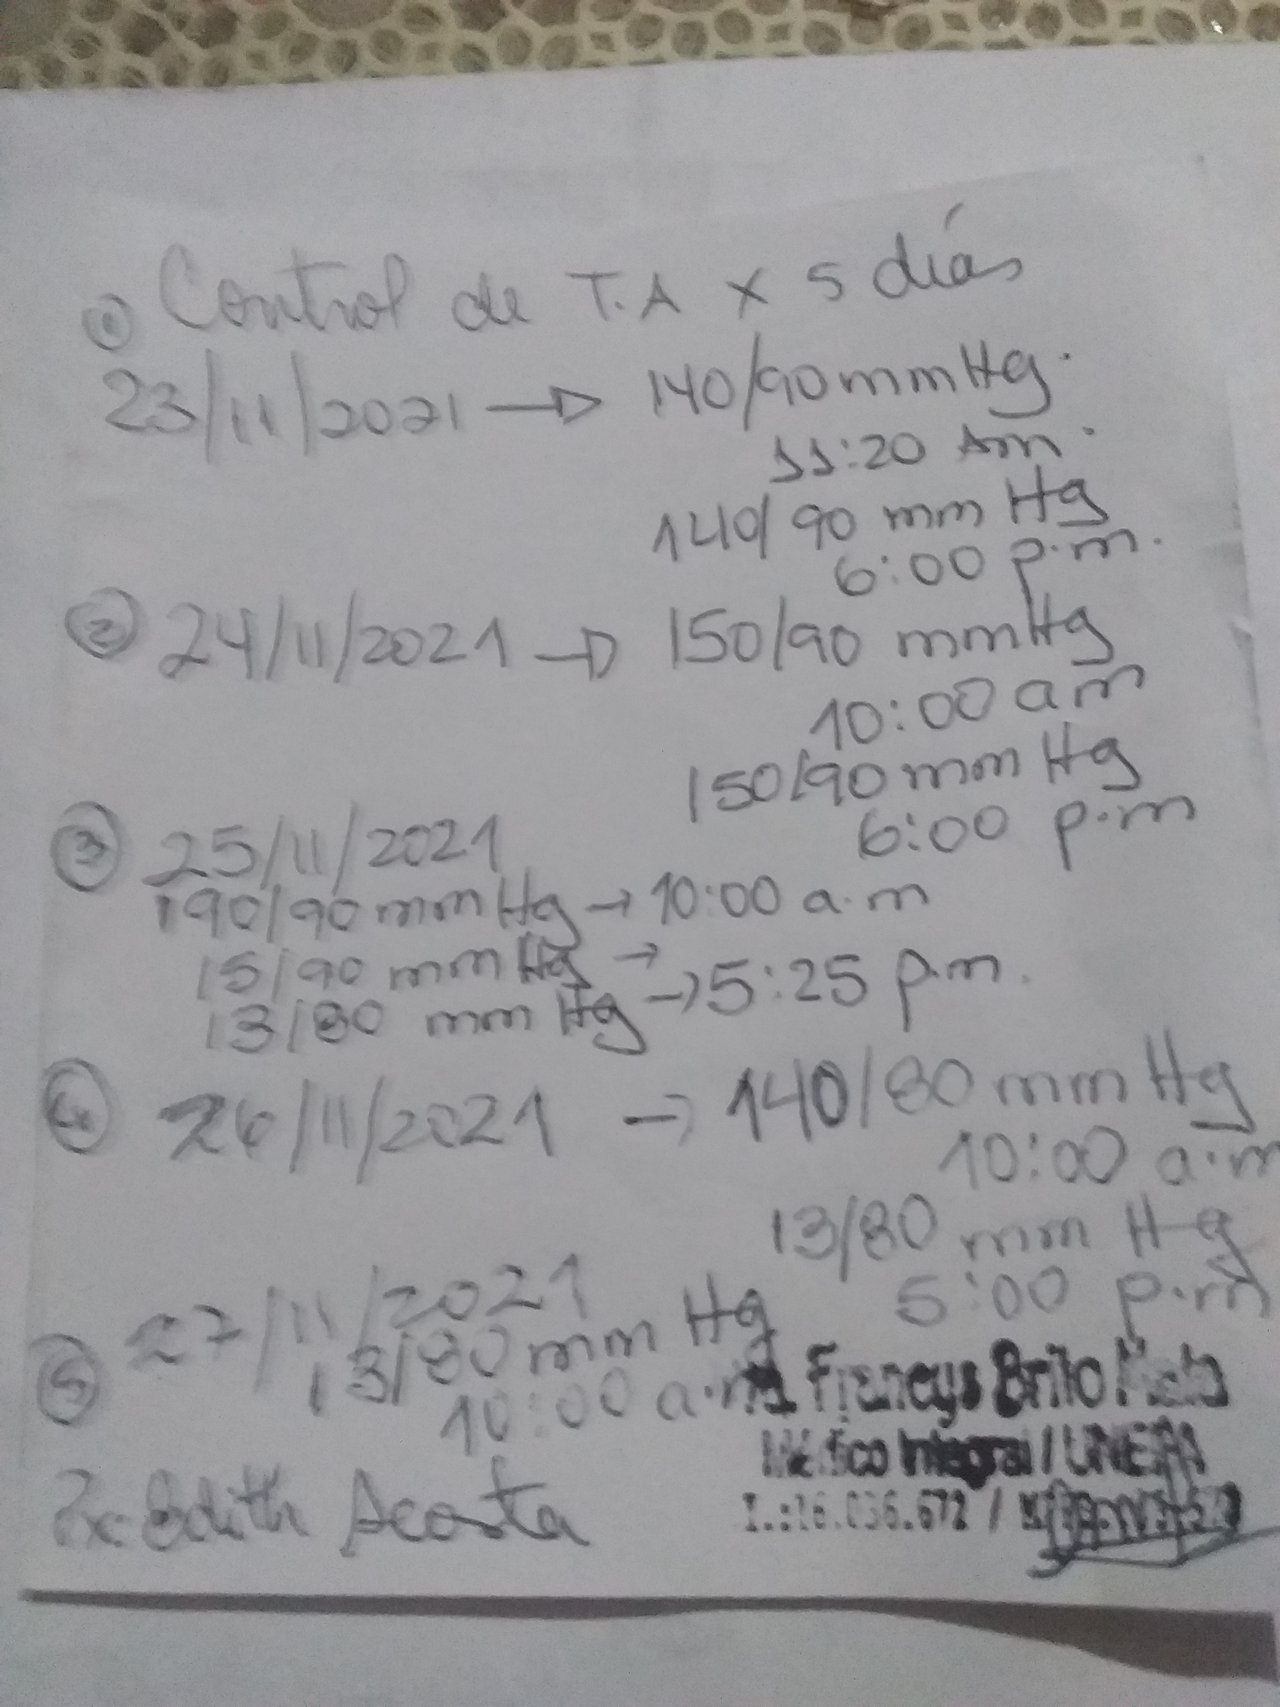 ① Control de T.A x 5 días
23/11/2021 → 140/90 mmHg.
11:20 Am.
140/90 mm Hg
6:00 p.m.
② 24/11/2021 → 150/90 mmHg
10:00 am
150/90 mm Hg
6:00 p.m
③ 25/11/2021
190/90 mm Hg → 10:00 a.m
15/90 mm Hg →
13/80 mm Hg → 5:25 p.m.
④ 26/11/2021 → 140/80 mm Hg
10:00 a.m
13/80 mm Hg
5:00 p.m
⑤ 27/11/2021
13/80 mm Hg
10:00 a.m
Edith Acosta
Francys Brito
Médico Integral / UNERA
I.:16.036.672 /